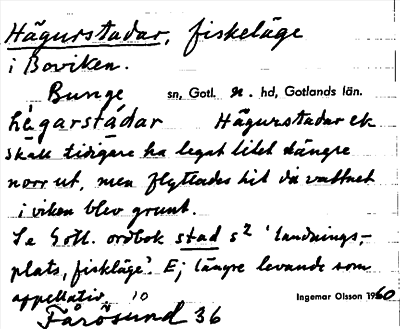 Hägurstadar, fiskeläge
i Boviken.
Bunge sn, Gotl. n. hd, Gotlands län.
hégarstádar Hägurstadar ek
skall tidigare ha legat litet längre
norr ut, men flyttades hit då vattnet
i viken blev grunt.
Se Gotl. ordbok stad s² 'landnings-
plats, fiskläge'. Ej längre levande som
appellativ. 10
Ingemar Olsson 1960
Fårösund 36